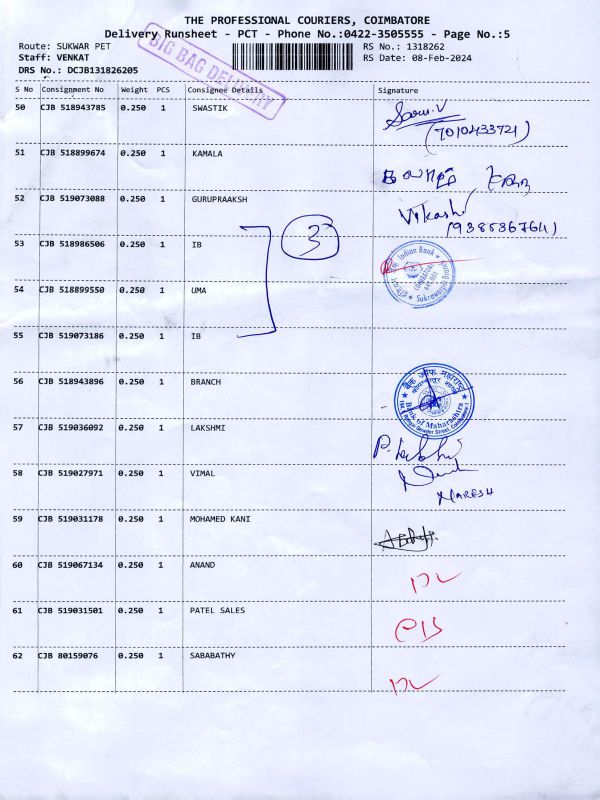 THE PROFESSIONAL COURIERS, COIMBATORE
Delivery Runsheet - PCT - Phone No.:0422-3505555 - Page No.:5
Route: SUKWAR PET
RS No.: 1318262
Staff: VENKAT
RS Date: 08-Feb-2024
DRS No.: DCJB131826205
BIG BAG DELIVERY
S No Consignment No Weight PCS Consignee Details Signature
50 CJB 518943785 0.250 1 SWASTIK
(7010433721)
51 CJB 518899674 0.250 1 KAMALA
52 CJB 519073088 0.250 1 GURUPRAAKSH
Vikash
3
53 CJB 518986506 0.250 1 IB
Indian Bank
54 CJB 518899550 0.250 1 UMA
55 CJB 519073186 0.250 1 IB
56 CJB 518943896 0.250 1 BRANCH
बैंक ऑफ महाराष्ट्र
Bank of Maharashtra
57 CJB 519036092 0.250 1 LAKSHMI
58 CJB 519027971 0.250 1 VIMAL
NARESH
59 CJB 519031178 0.250 1 MOHAMED KANI
60 CJB 519067134 0.250 1 ANAND
61 CJB 519031501 0.250 1 PATEL SALES
62 CJB 80159076 0.250 1 SABABATHY